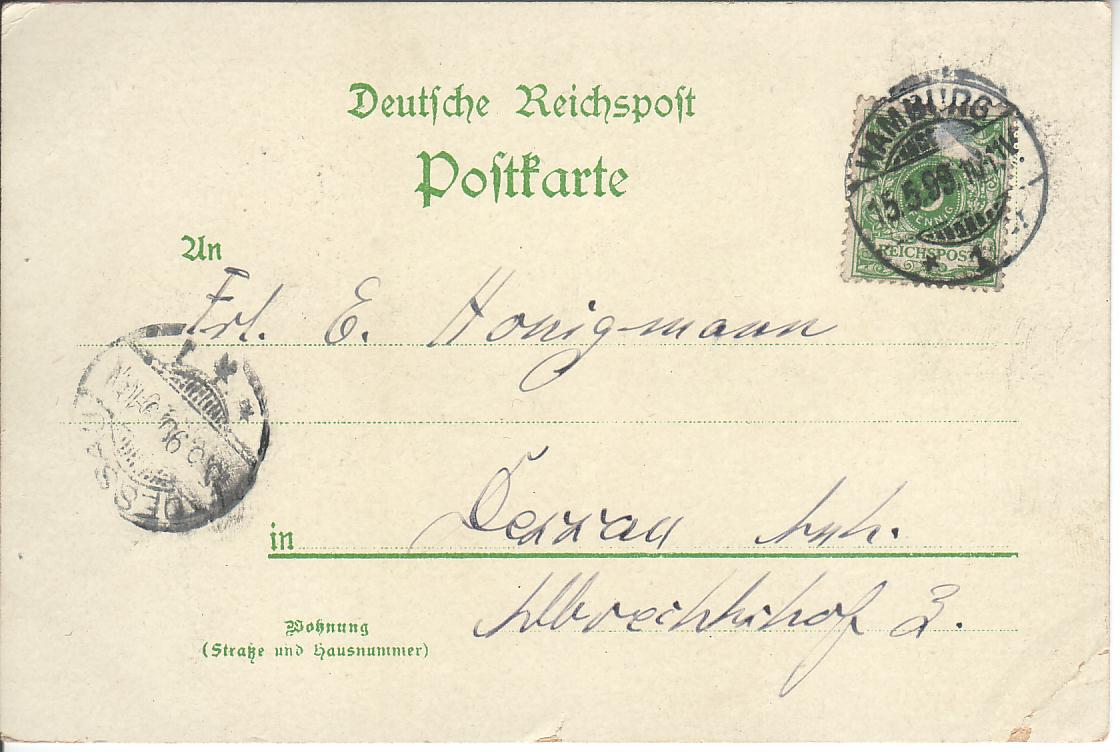 Deutsche Reichspost
Postkarte
HAMBURG
15.5.99.
* 1
PFENNIG
REICHSPOST
An
Frl. E. Honigmann
DESSAU
1 * *
in Dessau Anh.
Albrechtshof 3.
Wohnung
(Straße und Hausnummer)